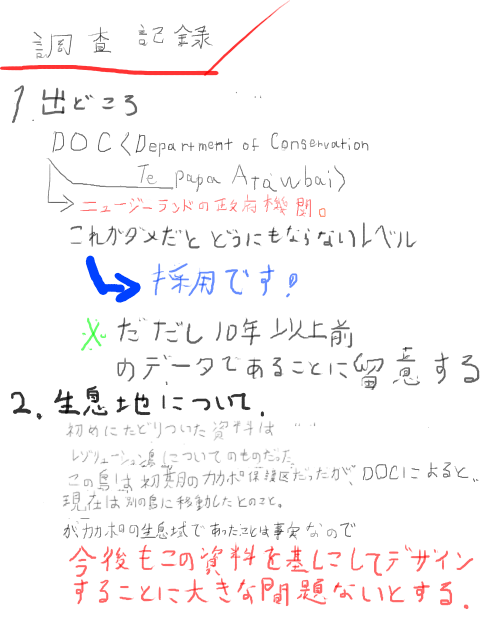 調査記録
1.出どころ
DOC〈Department of Conservation
Te papa Atawbai〉
→ニュージーランドの政府機関。
これがダメだとどうにもならないレベル
採用です!
※ただし10年以上前
のデータであることに留意する
2.生息地について.
初めにたどりついた資料は
レゾリューション島についてのものだった。
この鳥は初期のカカポ保護区だったが、DOCによると、
現在は別の島に移動したとのこと。
がカカポの生息域であったことは事実なので
今後もこの資料を基にしてデザイン
することに大きな問題ないとする.